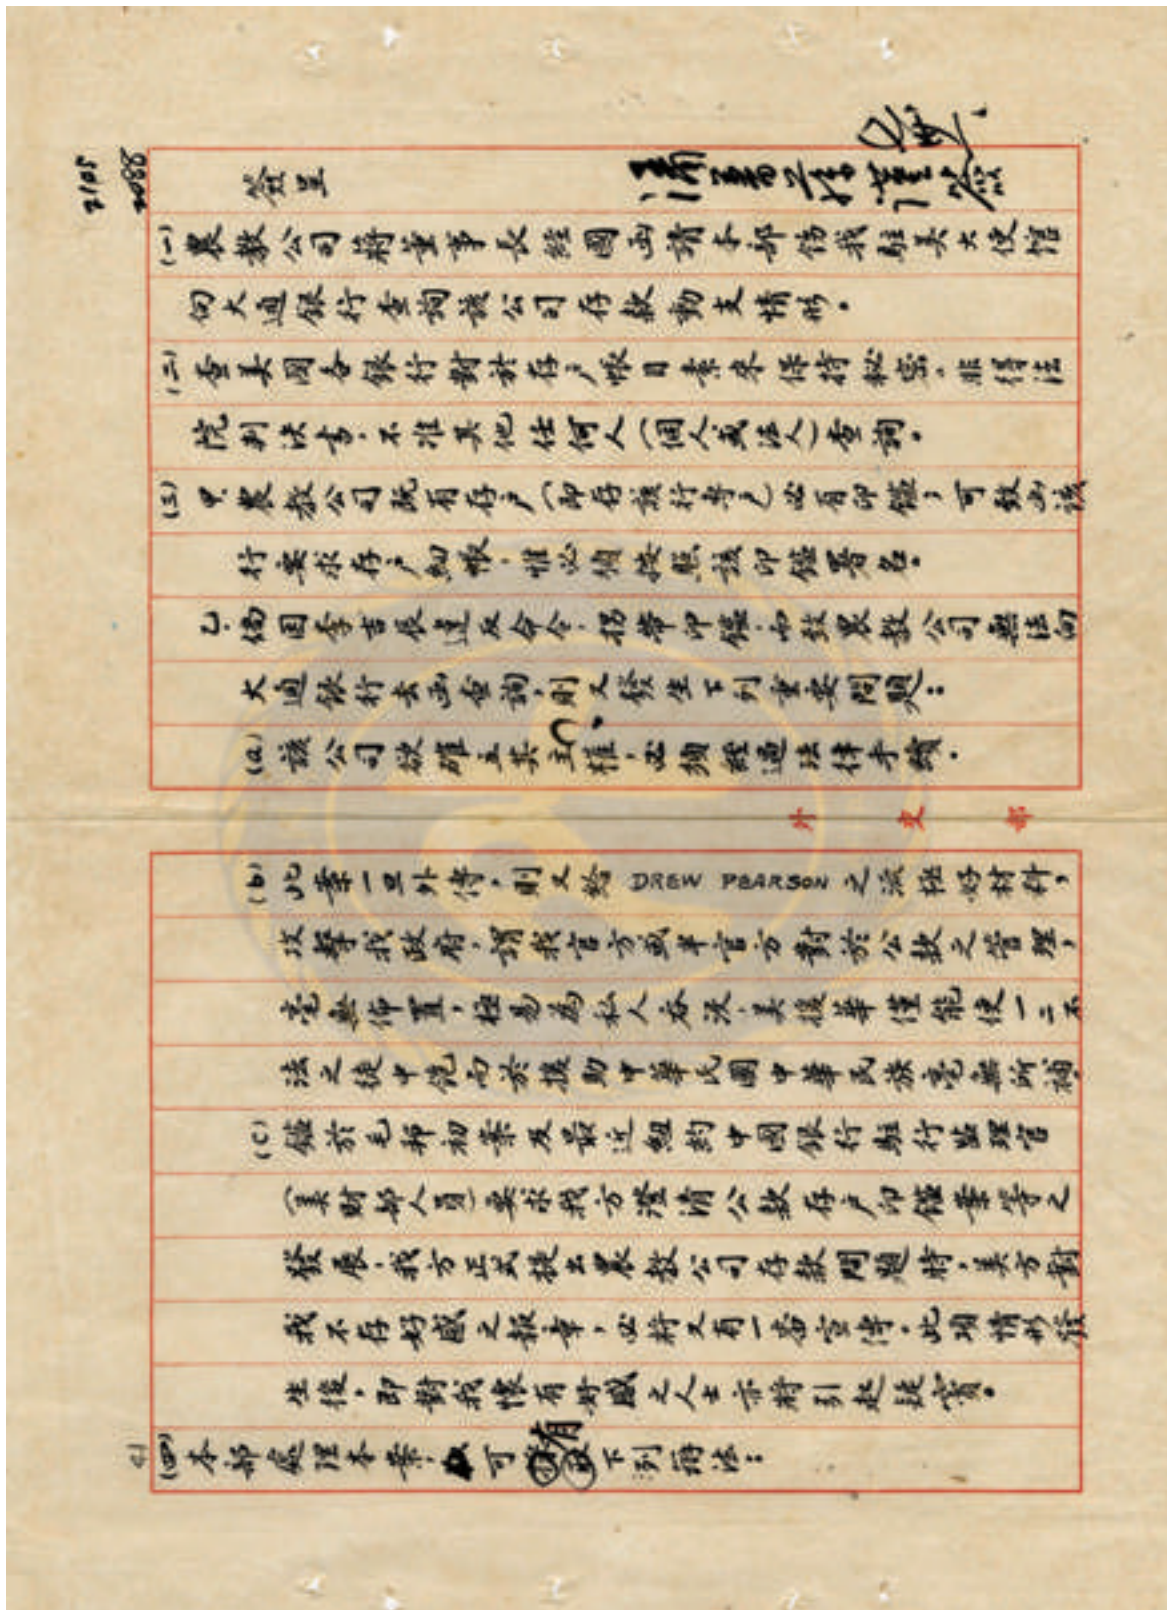 2105
2088
簽呈
謹簽
(一)農教公司蔣董事長經國函請本部飭我駐美大使館
向大通銀行查詢該公司存款動支情形。
(二)查美國各銀行對於存戶帳目素來保持秘密,非得法
院判決書,不准其他任何人(個人或法人)查詢。
(三)甲、農教公司既有存戶(即存該行者)必有印鑑,可致函該
行要求存戶細帳,惟必須按照該印鑑署名。
乙、倘因李吉辰違反命令,拐帶印鑑,而致農教公司無法向
大通銀行去函查詢,則又發生下列重要問題:
(a)該公司欲確立其主權,必須經過法律手續。
外交部
(b)此案一旦外傳,則又給 DREW PEARSON 之流極好材料,
攻擊我政府,謂我官方或半官方對於公款之管理,
毫無佈置,極易為私人吞沒,美援華僅能使一二不
法之徒中飽而於援助中華民國中華民族毫無所補。
(c)鑑於毛邦初案及最近紐約中國銀行駐行監理官
(美財部人員)要求我方澄清公款存戶印鑑案等之
發展,我方正式提出農教公司存款問題時,美方對
我不存好感之報章,必將又有一番宣傳,此項情形發
生後,即對我懷有好感之人士亦將引起疑竇。
(四)本部處理本案,可有下列辦法: